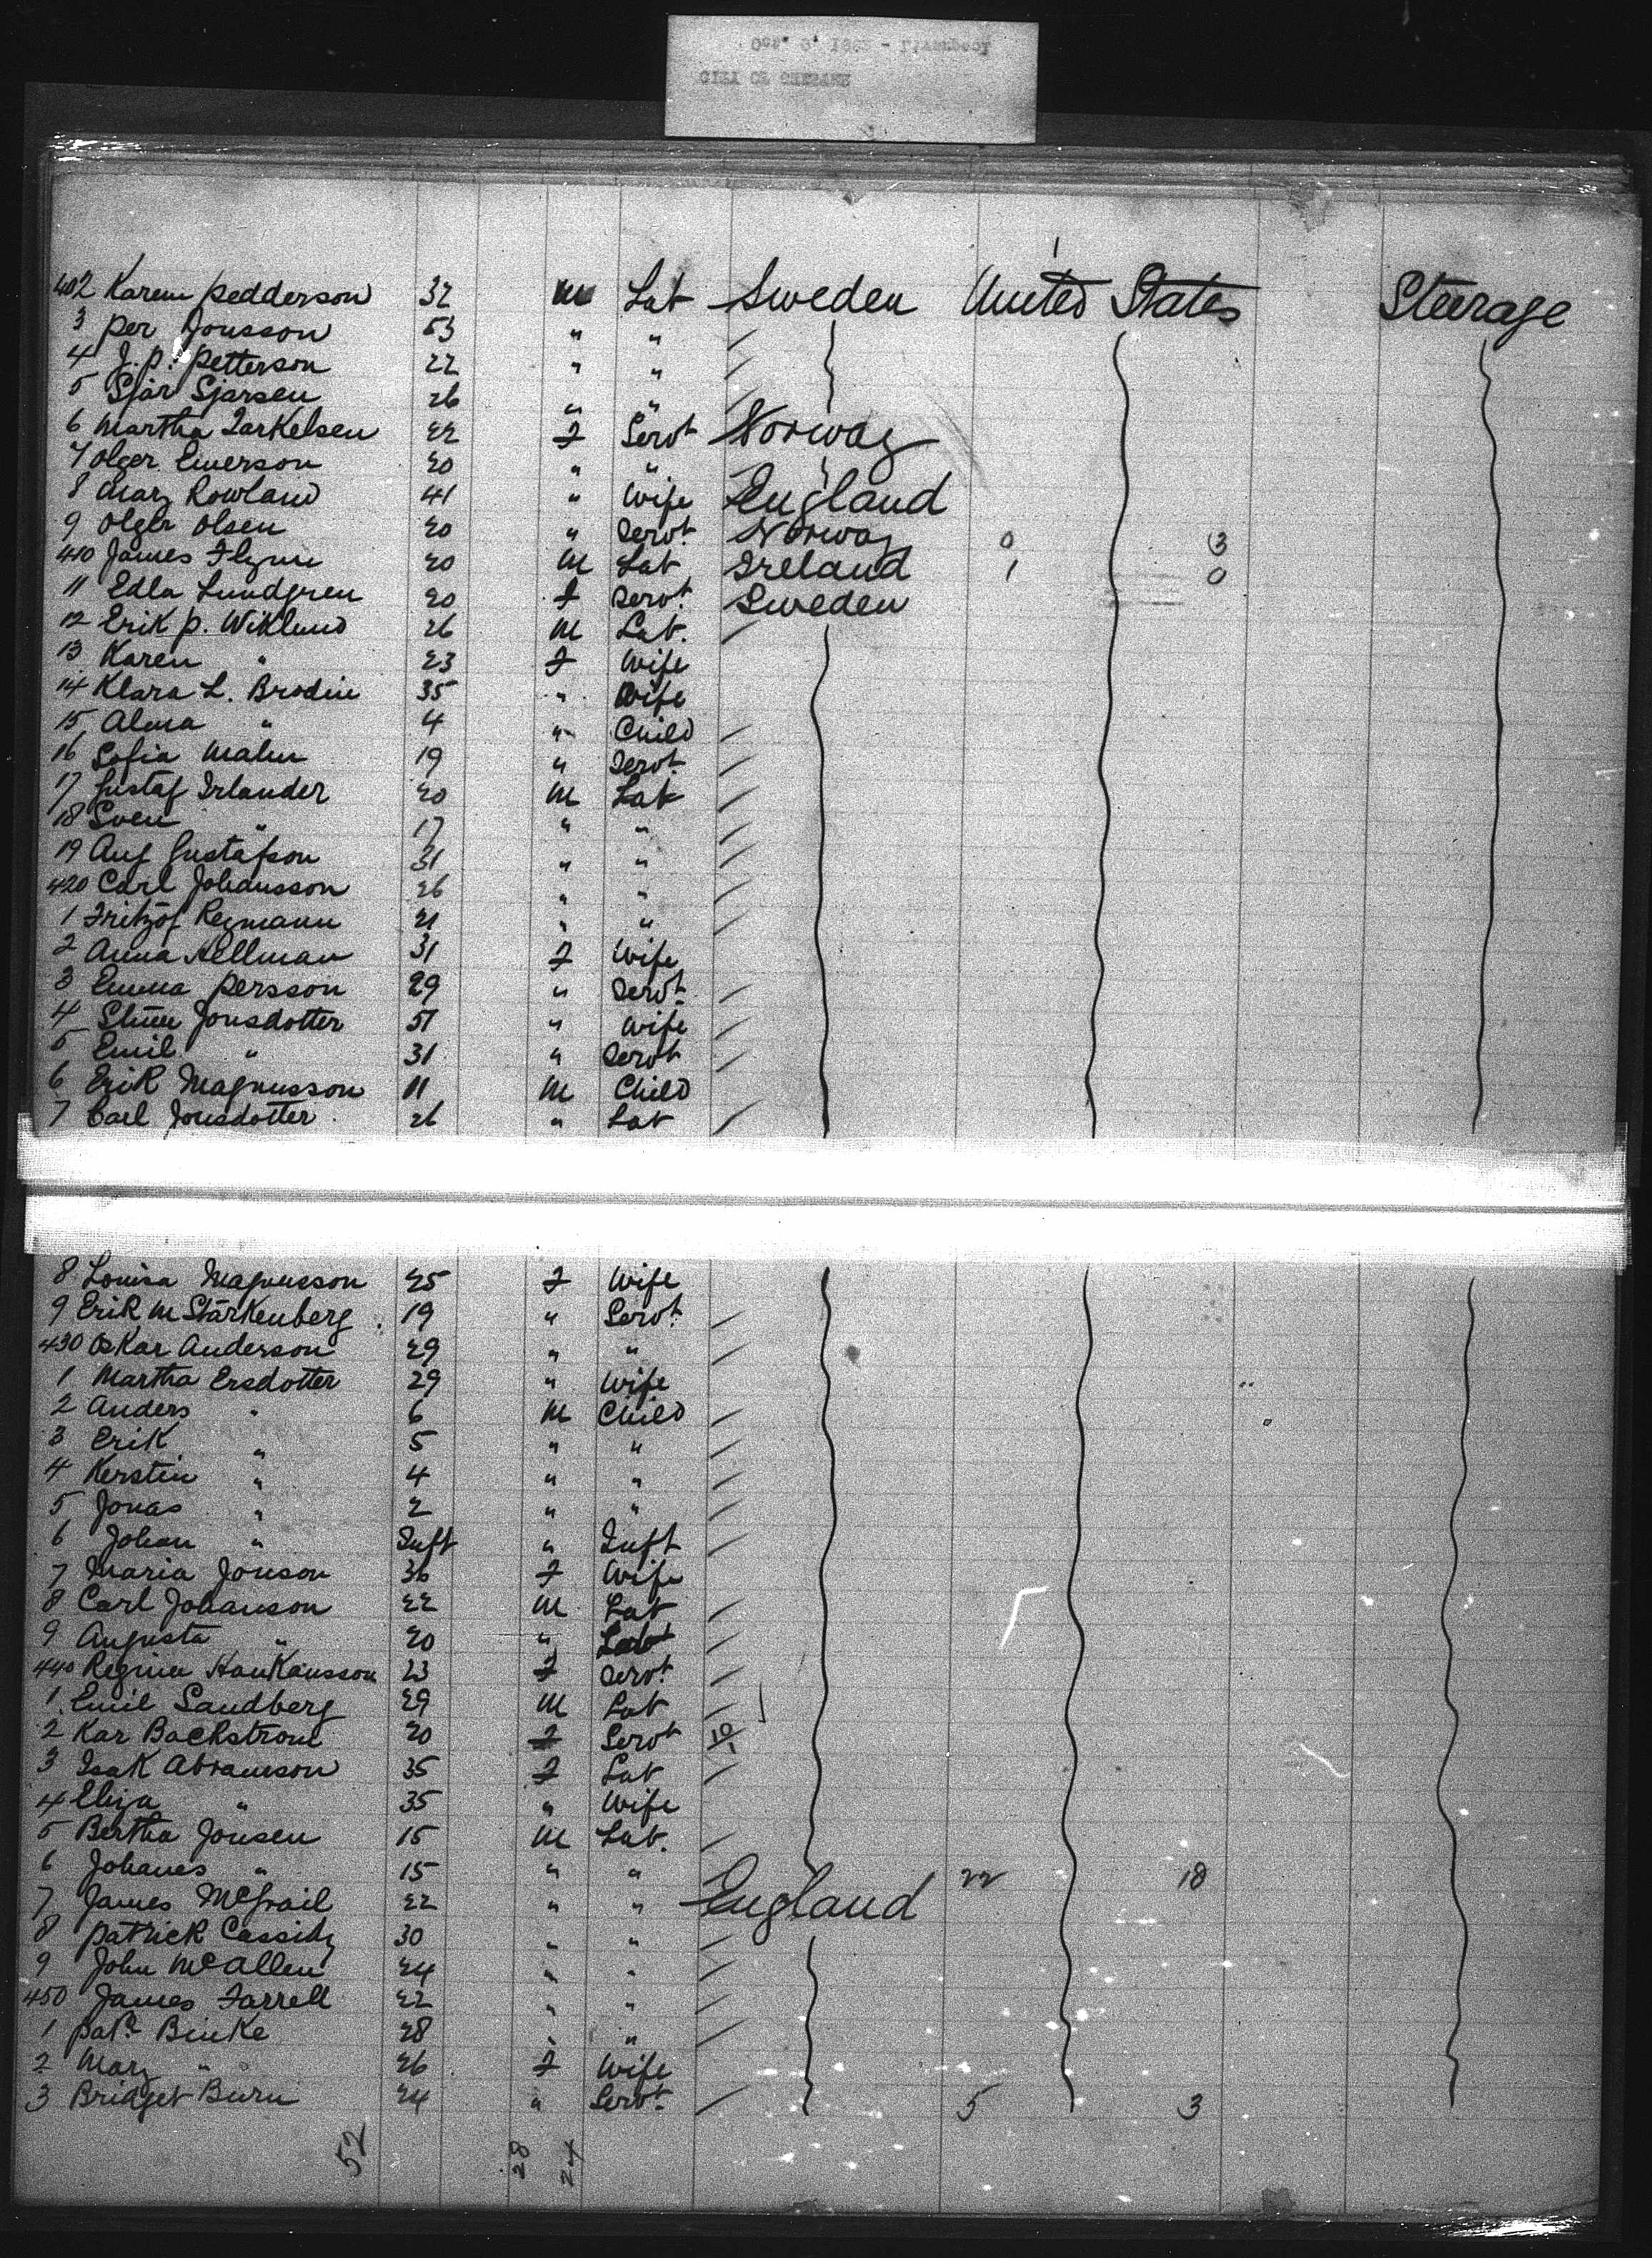 402 Karem pedderson 32 M Lab Sweden United States Steerage
3 per Jonsson 53 " "
4 J. p. petterson 22 " "
5 Sjar Sjarsen 26 " "
6 Martha Tarkelsen 22 F Servt Norway
7 Olger Emerson 20 " "
8 Mary Rowland 41 " Wife England
9 Olger Olsen 20 " Servt Norway 0 3
410 James Flynn 20 M Lab Ireland 1 0
11 Edla Lundgren 20 F Servt Sweden
12 Erik p. Wiklund 26 M Lab.
13 Karen " 23 F Wife
14 Klara L. Brodin 35 " Wife
15 Alma " 4 " Child
16 Sofia Malm 19 " Servt
17 Gustaf Irlander 20 M Lab
18 Sven " 17 " "
19 Aug Gustafson 31 " "
420 Carl Johansson 26 " "
1 Fritzof Regmann 21 " "
2 Anna Hellman 31 F Wife
3 Emma persson 29 " Servt
4 Jonsdotter 51 " Wife
5 Emil " 31 " Servt
6 Erik Magnusson 11 M Child
7 Carl Jonsdotter 26 " Lab
8 Louisa Magnusson 25 F Wife
9 Erik M Starkenberg 19 " Servt
430 Oskar Anderson 29 " "
1 Martha Ersdotter 29 " Wife
2 Anders " 6 M Child
3 Erik " 5 " "
4 Kerstin " 4 " "
5 Jonas " 2 " "
6 Johan " Inft " Inft
7 Maria Jonson 36 F Wife
8 Carl Johanson 22 M Lab
9 Augusta " 20 "
440 Regina Haukansson 23 F Servt
1 Emil Sandberg 29 M Lab
2 Kar Backstrom 20 F Servt
3 Isak Abramson 35 F Lab
4 Eliza " 35 " Wife
5 Bertha Jonsen 15 M Lab.
6 Johanes " 15 " " 22 18
7 James McGrail 22 " " England
8 patrick Cassidy 30 " "
9 John McAllen 24 " "
450 James Farrell 22 " "
1 patk Binke 28 " "
2 Mary " 26 F Wife
3 Bridget Burn 24 " Servt 5 3
52 28 24